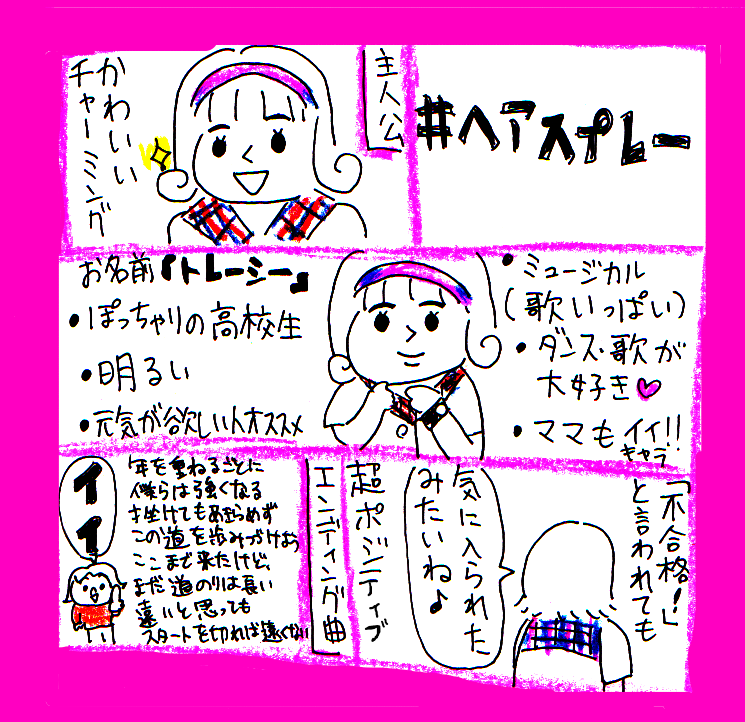 #ヘアスプレー
主人公
かわいい
チャーミング
・ミュージカル
(歌いっぱい)
・ダンス・歌が
大好き♡
・ママもイイ!!
キャラ
お名前『トレーシー』
・ぽっちゃりの高校生
・明るい
・元気が欲しい人オススメ
「不合格!」
と言われても
気に入られた
みたいね♪
超ポジティブ
エンディング曲
年を重ねるごとに
僕らは強くなる
あきらめず
この道を歩みつづけよう
ここまで来たけど、
まだ道のりは長い
遠いと思っても
スタートを切れば遠くない
イイ